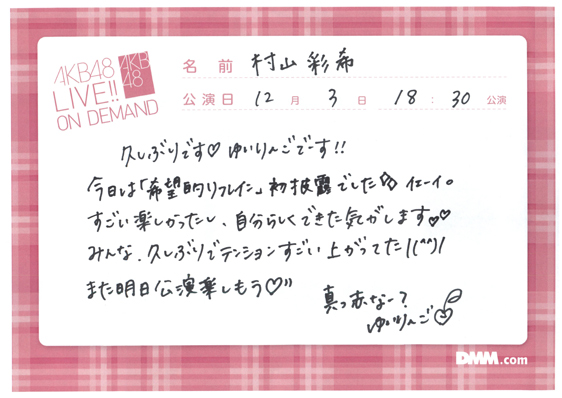 AKB48
LIVE!!
ON DEMAND
AKB
48
名前 村山彩希
公演日 12月 3日 18:30 公演
久しぶりです♡ ゆいりんごでーす!!
今日は「希望的リフレイン」初披露でした イエーイ。
すごい楽しかったし、自分らしくできた気がします♡♡
みんな、久しぶりでテンションすごい上がってた!(^^)!
また明日公演楽しもう♡"
真っ赤なー?
ゆいりんご
DMM.com